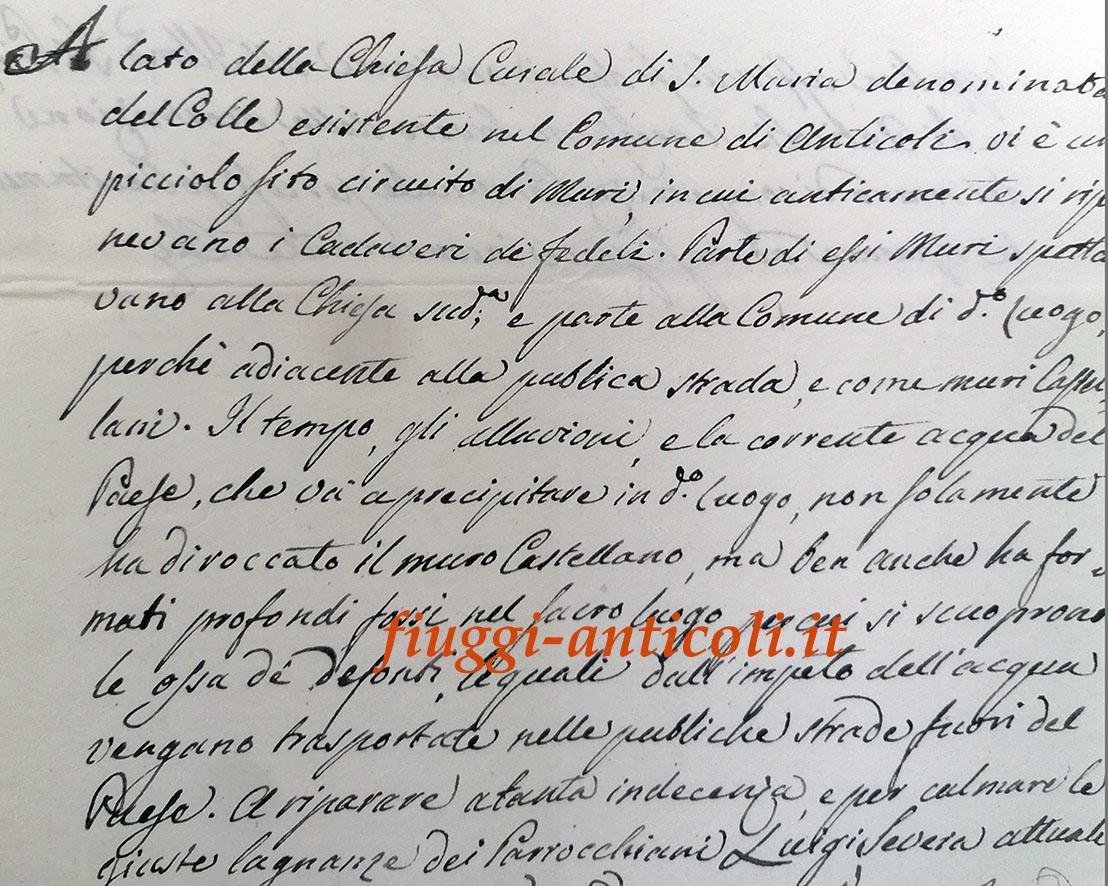 A lato della Chiesa Curale di S. Maria denominata
del Colle esistente nel Comune di Anticoli vi è un
picciolo sito circuito di Muri, in cui anticamente si ripo
nevano i Cadaveri de fedeli. Parte di essi Muri spetta
vano alla Chiesa sud.ª e parte alla Comune di d.º luogo,
perchè adiacente alla publica strada, e come muri Castel,
lani. Il tempo, gli alluvioni, e la corrente acqua del
Paese, che va a precipitare in d.º luogo, non solamente
ha diroccato il muro Castellano, ma ben anche ha for,
mati profondi fossi nel sacro luogo, per cui si scuoprono
fiuggi-anticoli.it
le ossa dè defonti, le quali dall'impeto dell'acqua
vengano trasportate nelle publiche strade fuori del
Paese. A riparare a tanta indecenza, e per calmare le
giuste lagnanze dei Parrocchiani Luigi Severa attuale